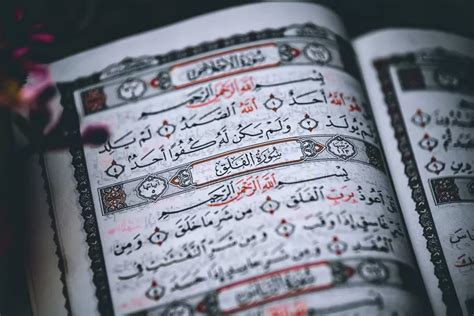 سُورَةُ الإِخْلَاصِ
بِسْمِ اللَّهِ الرَّحْمَٰنِ الرَّحِيمِ
قُلْ هُوَ اللَّهُ أَحَدٌ ۝ اللَّهُ الصَّمَدُ ۝ لَمْ يَلِدْ
وَلَمْ يُولَدْ ۝ وَلَمْ يَكُن لَّهُ كُفُوًا أَحَدٌ ۝
سُورَةُ الْفَلَقِ
بِسْمِ اللَّهِ الرَّحْمَٰنِ الرَّحِيمِ
قُلْ أَعُوذُ بِرَبِّ الْفَلَقِ ۝ مِن شَرِّ مَا خَلَقَ ۝ وَمِن
شَرِّ غَاسِقٍ إِذَا وَقَبَ ۝ وَمِن شَرِّ النَّفَّٰثَٰتِ فِي
الْعُقَدِ ۝ وَمِن شَرِّ حَاسِدٍ إِذَا حَسَدَ ۝
سُورَةُ النَّاسِ